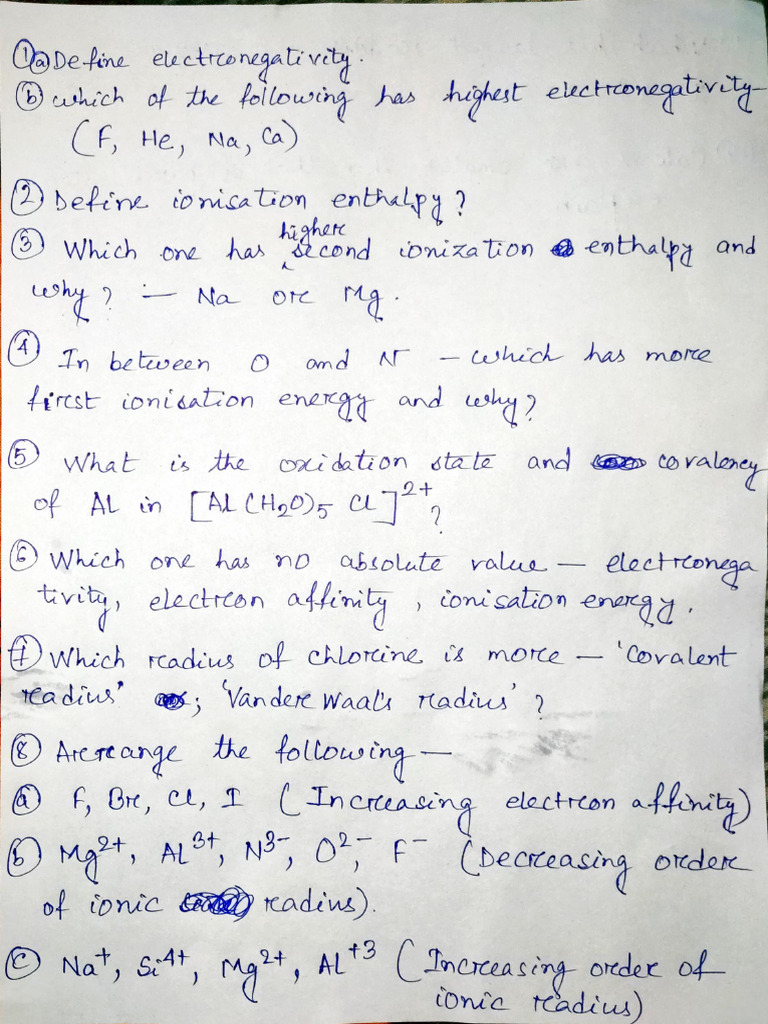 ①ⓐ Define electronegativity.
ⓑ which of the following has highest electronegativity
(F, He, Na, Ca)
② Define ionisation enthalpy?
③ Which one has higher second ionization enthalpy and
why? — Na or Mg.
④ In between O and N — which has more
first ionisation energy and why?
⑤ What is the oxidation state and covalency
of Al in [Al(H₂O)₅ Cl]²⁺?
⑥ Which one has no absolute value — electronega
tivity, electron affinity, ionisation energy.
⑦ Which radius of chlorine is more — 'Covalent
readius' ; 'Vander Waal's radius'?
⑧ Arrange the following —
ⓐ F, Br, Cl, I (Increasing electron affinity)
ⓑ Mg²⁺, Al³⁺, N³⁻, O²⁻, F⁻ (Decreasing order
of ionic radius).
ⓒ Na⁺, Si⁴⁺, Mg²⁺, Al⁺³ (Increasing order of
ionic radius)